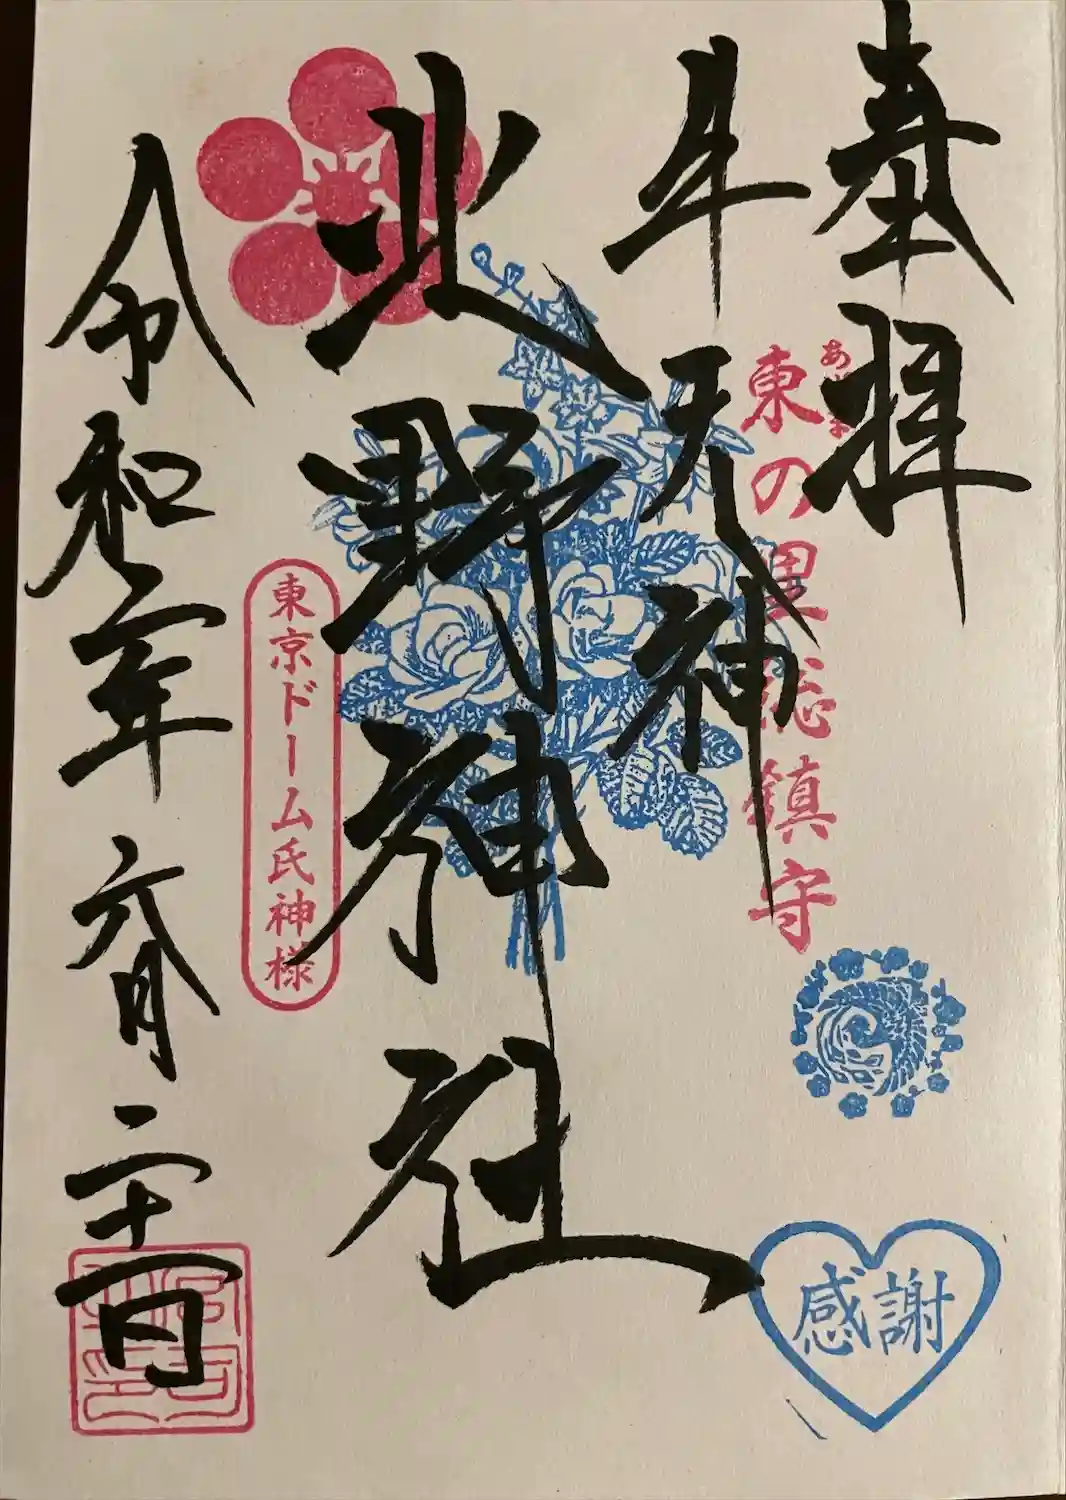 奉拝
東の里総鎮守
牛天神
北野神社
東京ドーム氏神様
令和
年六月二十
日
感謝